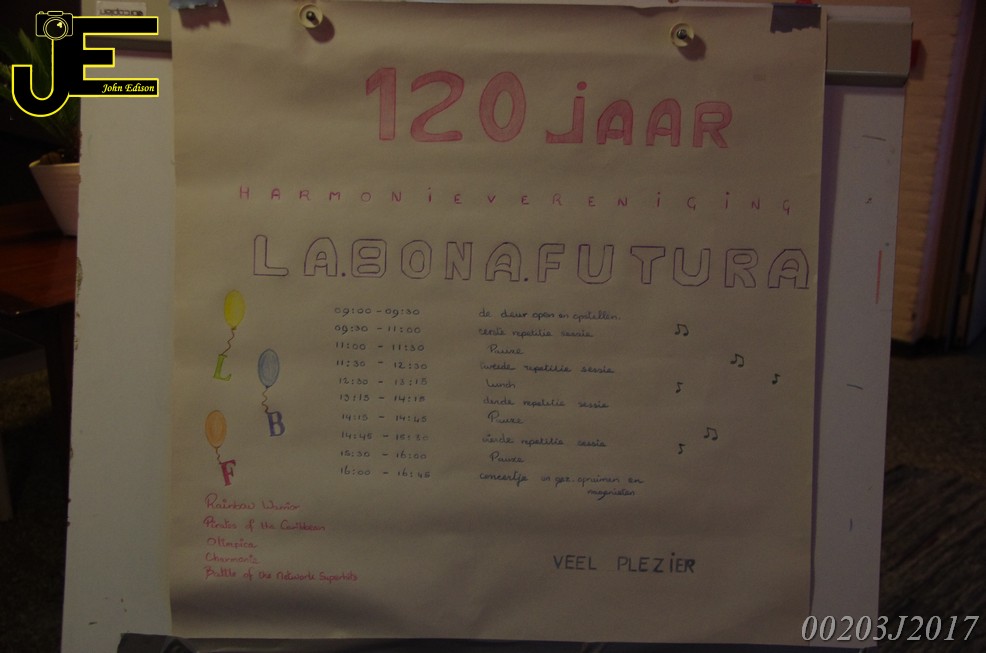 JE
John Edison
120 JAAR
HARMONIEVERENIGING
LA.BONA.FUTURA
09:00 - 09:30 de deur open en opstellen.
09:30 - 11:00 eerste repetitie sessie
11:00 - 11:30 Pauze
11:30 - 12:30 tweede repetitie sessie
12:30 - 13:15 Lunch
13:15 - 14:15 derde repetitie sessie
14:15 - 14:45 Pauze
14:45 - 15:30 vierde repetitie sessie
15:30 - 16:00 Pauze
16:00 - 16:45 concertje opruimen en
L
B
F
Rainbow Warrior
Pirates of the Caribbean
Olimpica
Charmonic
Battle of the Network Superhits
VEEL PLEZIER
00203J2017